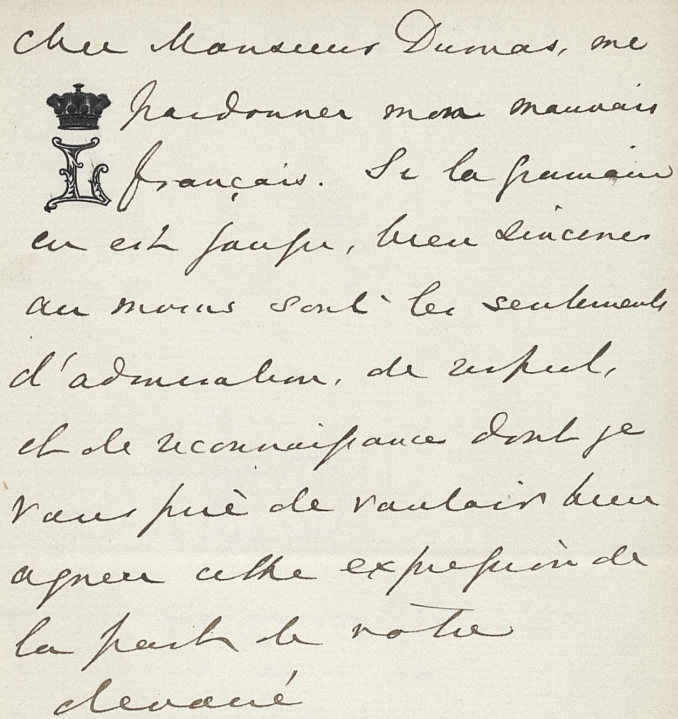 cher Monsieur Dumas, me
pardonner mon mauvais
L
français. Si la grammaire
en est fausse, bien sincères
au moins sont les sentiments
d'admiration, de respect,
et de reconnaissance dont je
vous prie de vouloir bien
agréer cette expression de
la part de votre
dévoué